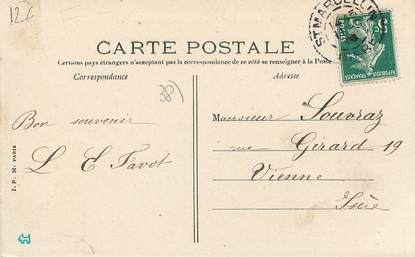 122
CARTE POSTALE
Certains pays étrangers n'acceptant pas la correspondance de ce côté se renseigner à la Poste
Correspondance
Adresse
38)
Bon souvenir
L E Favot
Monsieur Souvraz
rue Girard 19
Vienne
Isère
I. P. M. PARIS
ST MARCELLIN
5
POSTES
REPUBLIQUE FRANÇAISE